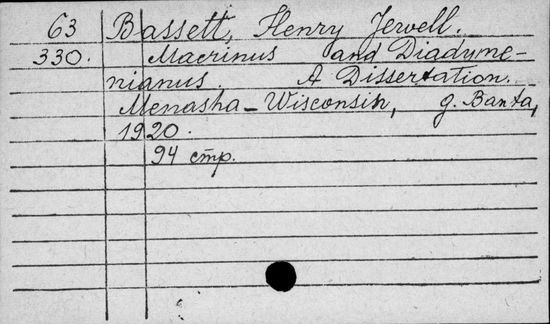 63 Bassett, Henry Jewell.
330. Macrinus and Diadyme-
nianus. A Dissertation.
Menasha-Wisconsin, G. Banta,
1920.
94 стр.